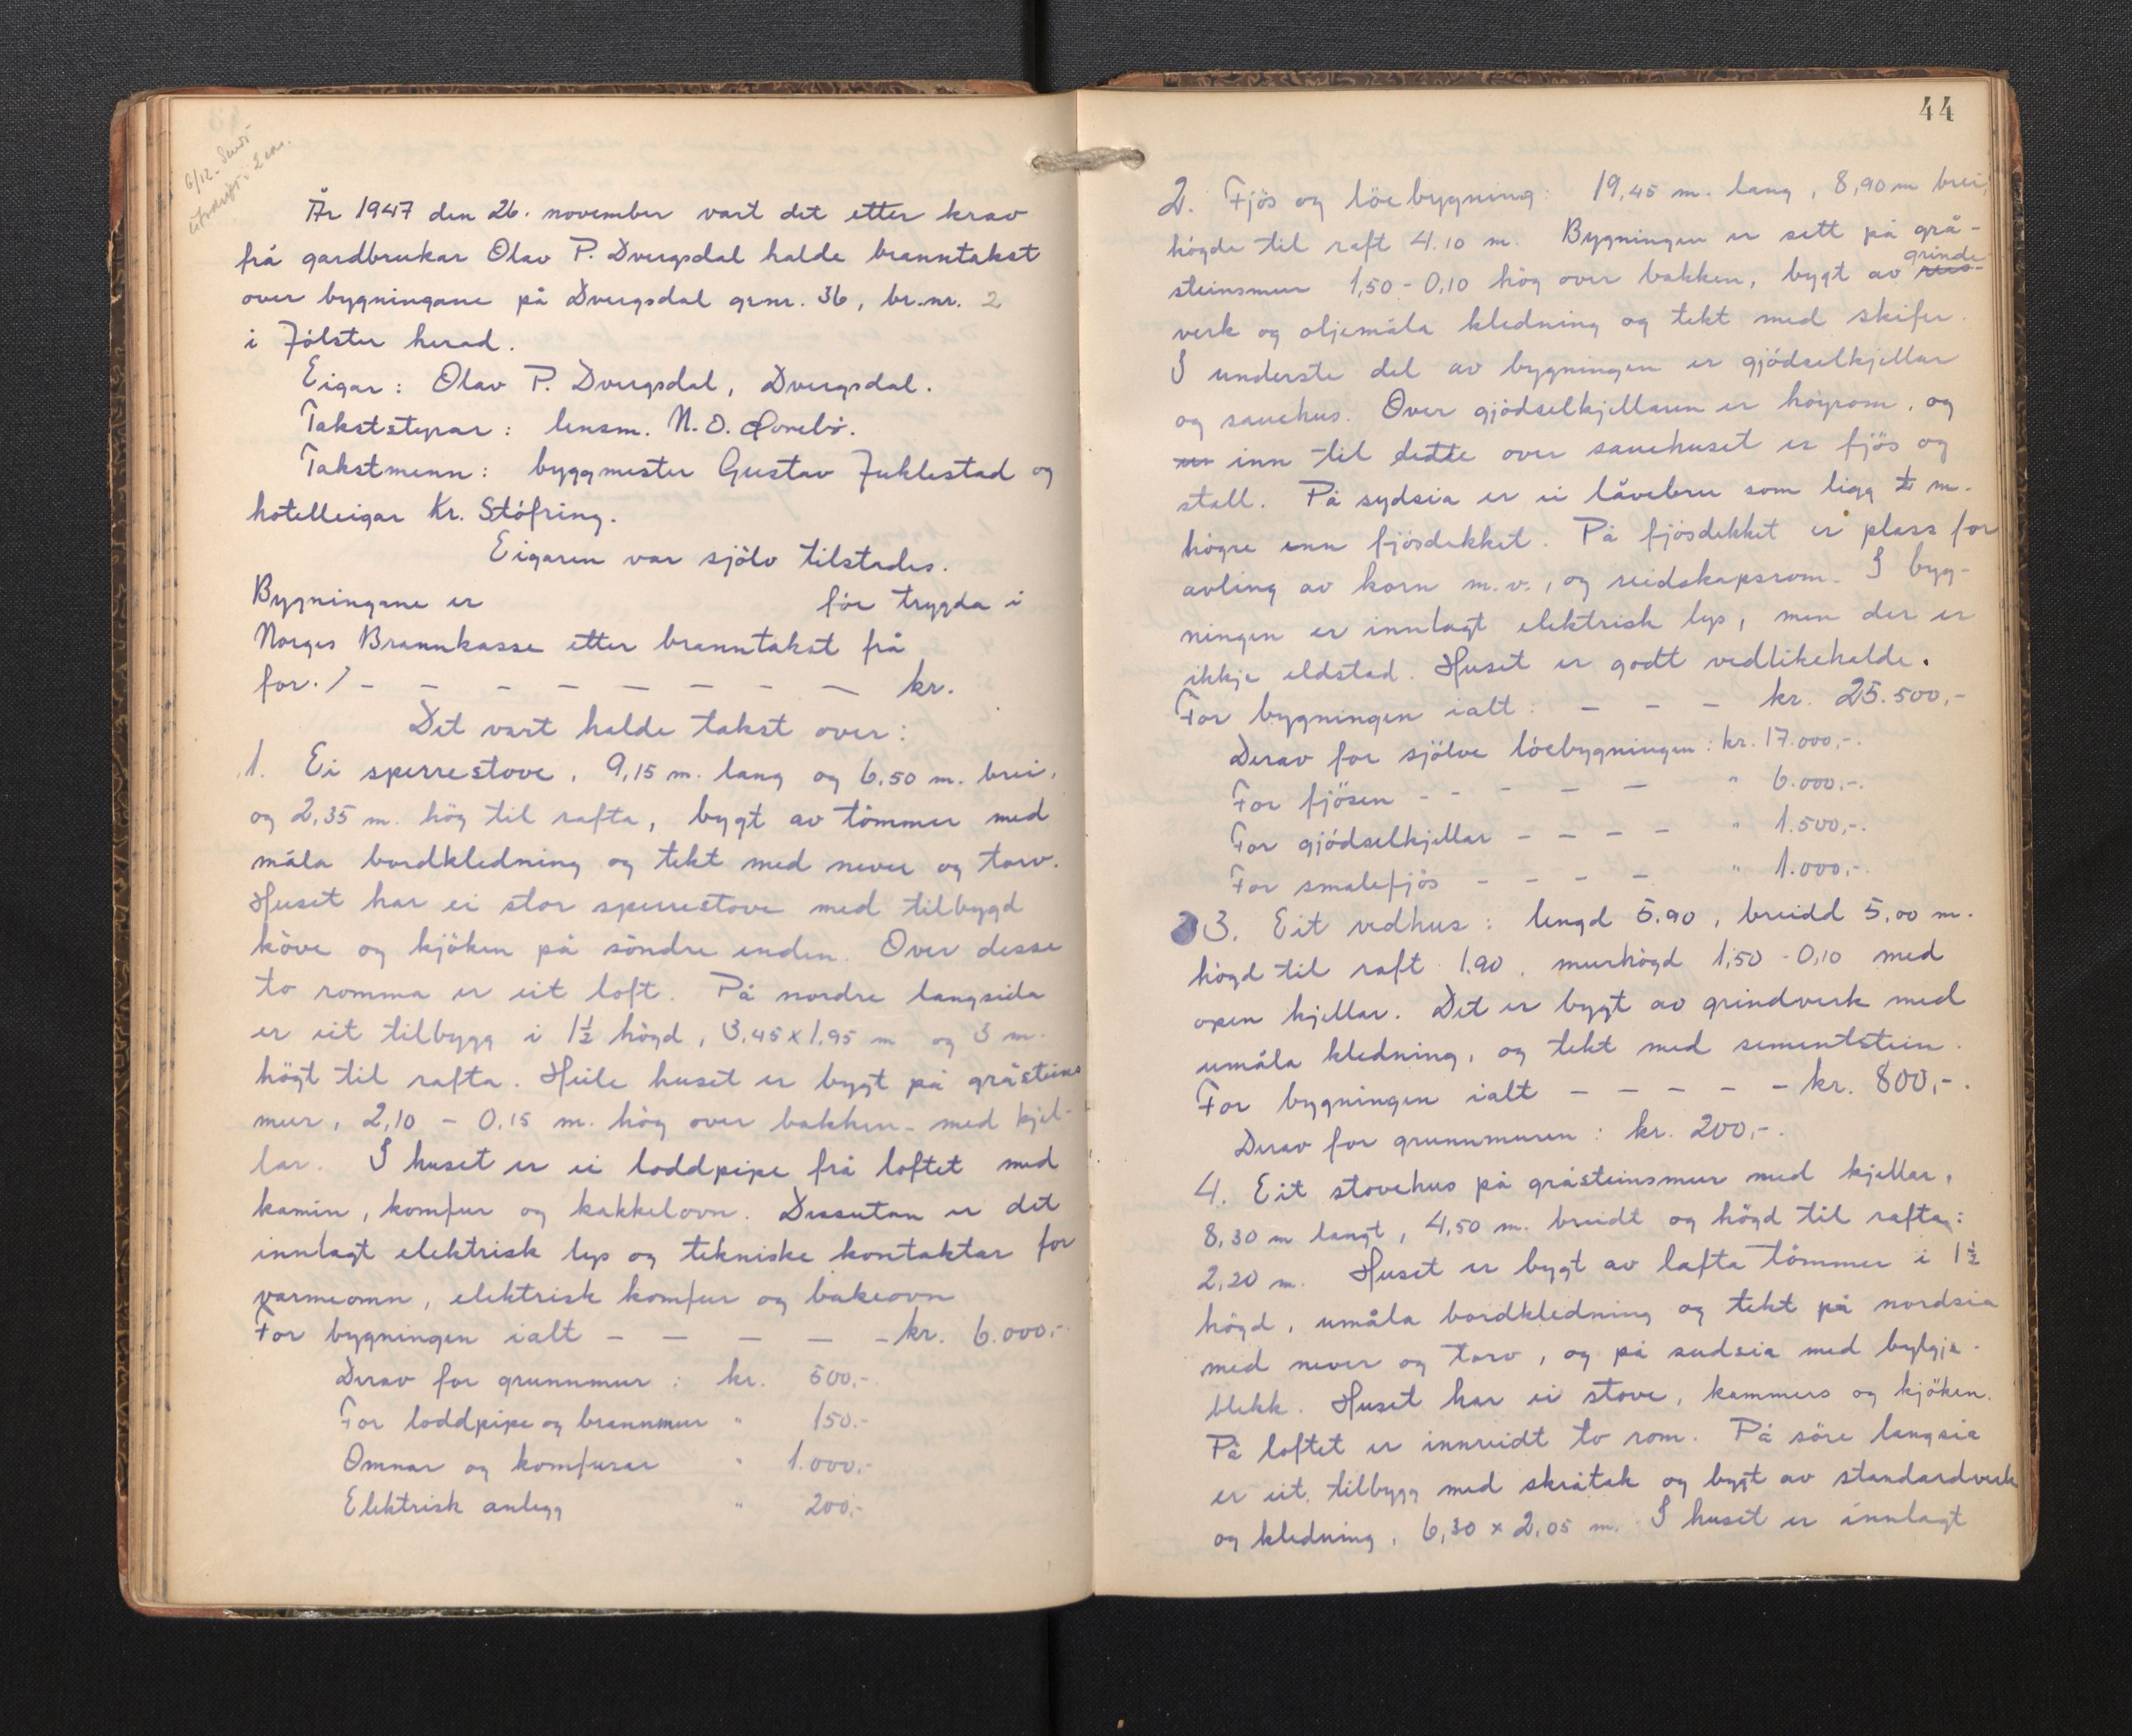 6/12- Sendt
utskrift i 2 eks.
År 1947 den 26. november vart det etter krav
frå gardbrukar Olav P. Dvergsdal halde branntakst
over bygningane på Dvergsdal grnr. 36, br.nr. 2
i Jölster herad.
Eigar: Olav P. Dvergsdal, Dvergsdal.
Takststyrar: lensm. N. O. Övrebö.
Takstmenn: byggmester Gustav Juklestad og
hotelleigar Kr. Stöfring.
Eigaren var sjölv tilstades.
Bygningane er för trygda i
Norges Brannkasse etter branntakst frå
for. / - - - - - - - - kr.
Det vart halde takst over:
1. Ei sperrestove, 9,15 m. lang og 6,50 m. brei,
og 2,35 m. hög til rafta, bygt av tömmer med
måla bordkledning og tekt med never og torv.
Huset har ei stor sperrestove med tilbygd
köve og kjöken på söndre enden. Over desse
to romma er eit loft. På nordre langsida
er eit tilbygg i 1½ högd, 3,45 x 1,95 m og 3 m.
högt til rafta. Heile huset er bygt på gråsteins
mur, 2,10 - 0,15 m. hög over bakken - med kjel-
lar. I huset er ei loddpipe frå loftet med
kamin, komfur og kakkelovn. Dessutan er det
innlagt elektrisk lys og tekniske kontaktar for
varmeomn, elektrisk komfur og bakeovn
For bygningen ialt - - - - - kr. 6.000,-
Derav for grunnmur: kr. 500,-
For loddpipe og brannmur " 150.-
Omnar og komfurar " 1.000,-
Elektrisk anlegg " 200,-
44
2. Fjös og löebygning: 19,45 m. lang, 8,90 m brei,
högde til raft 4.10 m. Bygningen er sett på grå-
steinsmur 1,50 - 0,10 hög over bakken, bygt av grinde
verk og oljemåla kledning og tekt med skifer.
I underste del av bygningen er gjödselkjellar
og sauehus. Over gjödselkjellaren er höyrom, og
inn til dette over sauehuset er fjös og
stall. På sydsia er ei låvebru som ligg ½ m.
högre enn fjösdekket. På fjösdekket er plass for
avling av korn m.v., og reidskapsrom. I byg-
ningen er innlagt elektrisk lys, men der er
ikkje eldstad. Huset er godt vedlikehalde.
For bygningen ialt: - - - kr. 25.500,-
Derav for sjölve löebygningen: kr. 17.000,-.
For fjösen - - - - - " 6.000,-.
For gjödselkjellar - - - - " 1.500,-.
For smalefjös - - - - " 1.000,-.
3. Eit vedhus: lengd 5.90, breidd 5,00 m.
högd til raft 1.90, murhögd 1,50 - 0,10 med
open kjellar. Det er bygt av grindverk med
umåla kledning, og tekt med sementstein.
For bygningen ialt - - - - - kr. 800,-.
Derav for grunnmuren: kr. 200,-.
4. Eit stovehus på gråsteinsmur med kjellar,
8,30 m langt, 4,50 m. breidt og högd til rafta:
2,20 m. Huset er bygt av lafta tömmer i 1½
högd, umåla bordkledning og tekt på nordsia
med never og torv, og på sudsia med bylgje-
blekk. Huset har ei stove, kammers og kjöken.
På loftet er innreidt to rom. På söre langsia
er eit tilbygg med skråtak og bygt av standardverk
og kledning, 6,30 x 2,05 m. I huset er innlagt